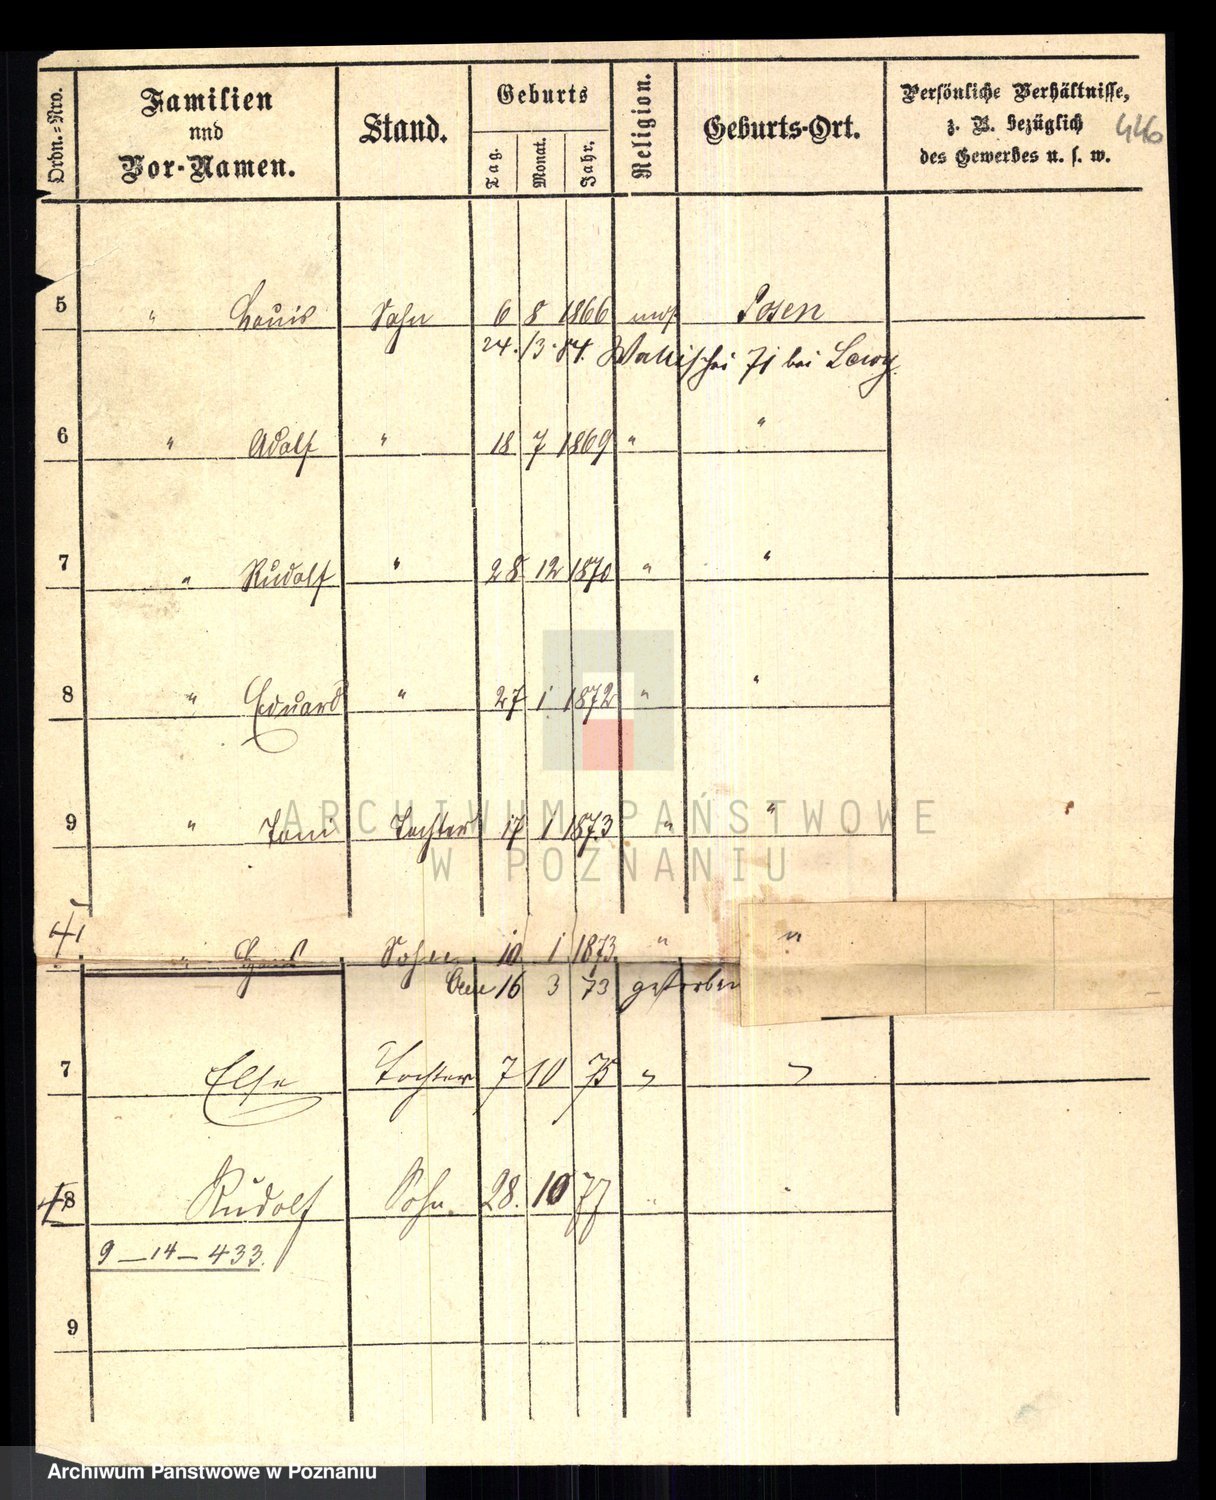 Ordn.=Nro.
Familien
nnd
Vor=Namen.
Stand.
Geburts
Tag.
Monat.
Jahr.
Religion.
Geburts=Ort.
Persönliche Verhältnisse,
z. B. bezüglich
des Gewerbes u. s. w.
446
5 " Louis Sohn 6 8 1866 mos Posen
24./3. 84. Wallischei 71 bei Lewy.
6 " Adolf " 18 7 1869 " "
7 " Rudolf " 28 12 1870 " "
8 " Eduard " 27 1 1872 " "
9 " Toni Tochter 17 1 1873 " "
ARCHIWUM PAŃSTWOWE
W POZNANIU
" Hans Sohn 10 1 1873 " "
16 3 73 gestorben
7 Else Tochter 7 10 75 " "
8 Rudolf Sohn. 28. 10 77 " "
9 — 14 — 433.
9
Archiwum Państwowe w Poznaniu